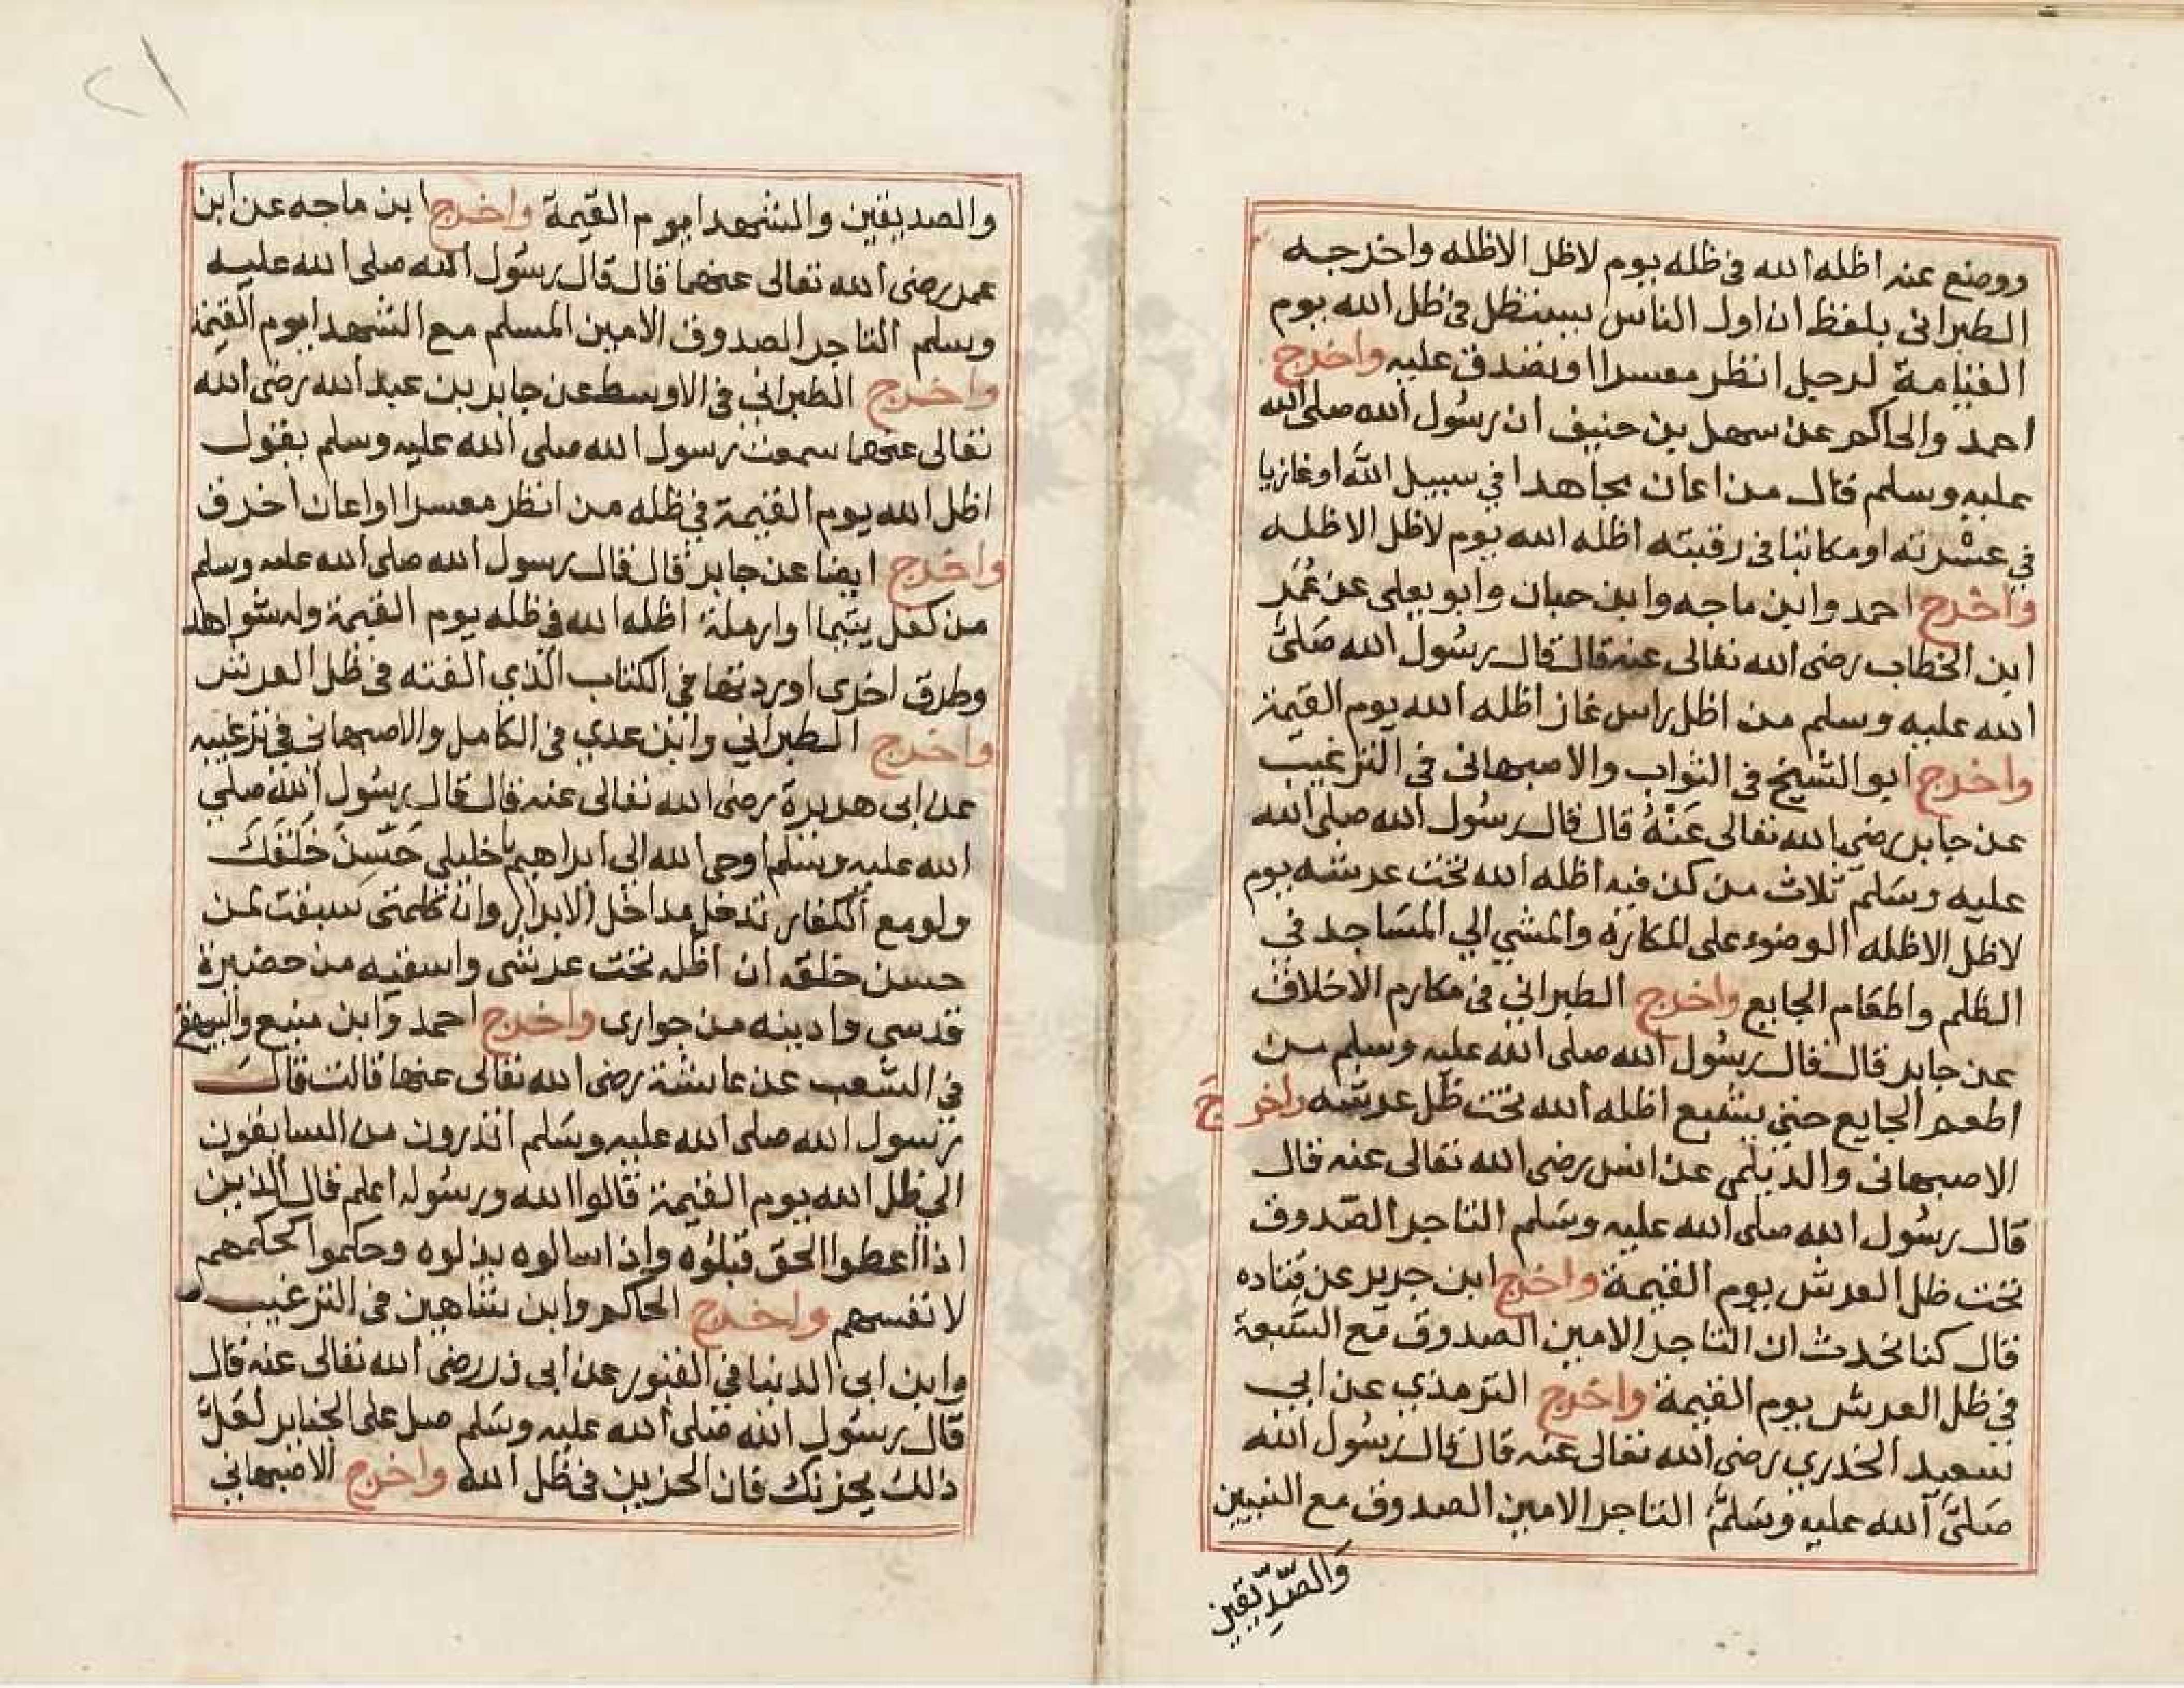 ووضع عنه اظله الله فى ظله يوم لاظل الاظله واخرجه
الطبرانى بلفظ ان اول الناس يستظل فى ظل الله يوم
القيامة لرجل انظر معسرا او تصدق عليه واخرج
احمد والحاكم عن سهل بن حنيف ان رسول الله صلى الله
عليه وسلم قال من اعان مجاهدا في سبيل الله او غازيا
في عسْرته او مكاتبا فى رقبته اظله الله يوم لاظل الاظله
واخرج احمد وابن ماجه وابن حبان وابو يعلى عن عُمر
ابن الخطاب رضى الله تعالى عنه قال قال رسُول الله صَلىَّ
الله عليه وسلم من اظل راس غاز اظله الله يوم القيمة
واخرج ابو الشيخ فى الثواب والاصبهانى فى الترغيب
عن جابر رضى الله تعالى عَنْهُ قال قال رسُول الله صلى الله
عليه وسَلم ثلاث من كن فيه اظله الله تحت عرشه يوم
لاظل الاظله الوضوء على المكاره والمشي الي المسَاجد في
الظلم واطعَام الجايع واخرج الطبراني فى مكارم الاخلاق
عن جابر قال قال رسُول الله صلى الله عليه وسلم من
اطعم الجايع حتى يشبع اظله الله تحت ظل عرشه واخرج
الاصبهانى والديلمى عن انس رضى الله تعالى عنه قال
قال رسُول الله صلى الله عليه وسَلم التاجر الصّدوق
تحت ظل العرش يوم القيمة واخرج ابن جرير عن قتاده
قال كنا نحدث ان التاجر الامين الصدوق مع السَّبعة
في ظل العرش يوم القيمة واخرج الترمذي عن ابي
سعيد الخدري رضى الله تعالى عنه قال قال رسُول الله
صَلىَّ الله عليه وسَلمَّ التاجر الامين الصدوق مع النبيين
وَالصّدِّيقين
٢١
والصديقين والشهدا يوم القيمة واخرج ابن ماجه عن ابن
عمر رضى الله تعالى عنهما قال قال رسُول الله صلى الله عليه
وسلم التاجر الصدوق الامين المسلم مع الشهدا يوم القيمة
واخرج الطبراني في الاوسط عن جابر بن عبد الله رضى الله
تعالى عنهما سمعت رسول الله صلى الله عليه وسلم يقول
اظل الله يوم القيمة في ظله من انظر معسرا او اعان اخرق
واخرج ايضا عن جابر قال قال رسول الله صلى الله عليه وسلم
من كفل يتيما او ارملة اظله الله فى ظله يوم القيمة وله شواهد
وطرق اخرى اوردتها فى الكتاب الذي الفته فى ظل العرش
واخرج الطبراني وابن عدي فى الكامل والاصبهانى في ترغيبه
عن ابى هريرة رضى الله تعالى عنه قال قال رسُول الله صلي
الله عليه وسَلم اوحى الله الى ابراهيم يا خليلى حَسِّن خَلقَكَ
ولو مع الكفار تدخل مداخل الابرار وان كلمتى سَبقت لمن
حسن خلقه ان اظله تحت عرشى واسقيه من حضيرة
قدسى وادينه من جوارى واخرج احمد وَابن منيع والبيهقى
في الشعب عن عايشة رضى الله تعالى عنها قالت قال
رَسول الله صلى الله عليه وسَلم اتدرون من السابقون
الى ظل الله يوم القيمة قالوا الله ورسُوله اعلم قال الذين
اذا اعطوا الحق قبلوُه واذا سالوه بذلوه وحكموا كحكمهم
لانفسهم واخرج الحاكم وابن شاهين فى الترغيب
وابن ابى الدنيا في القبور عن ابى ذر رضى الله تعالى عنه قال
قال رسُول الله صَلى الله عليه وسَلم صل على الجنايز لعَلَّ
ذلك يحزنك فان الحزين فى ظل الله واخرج الاصبهاني